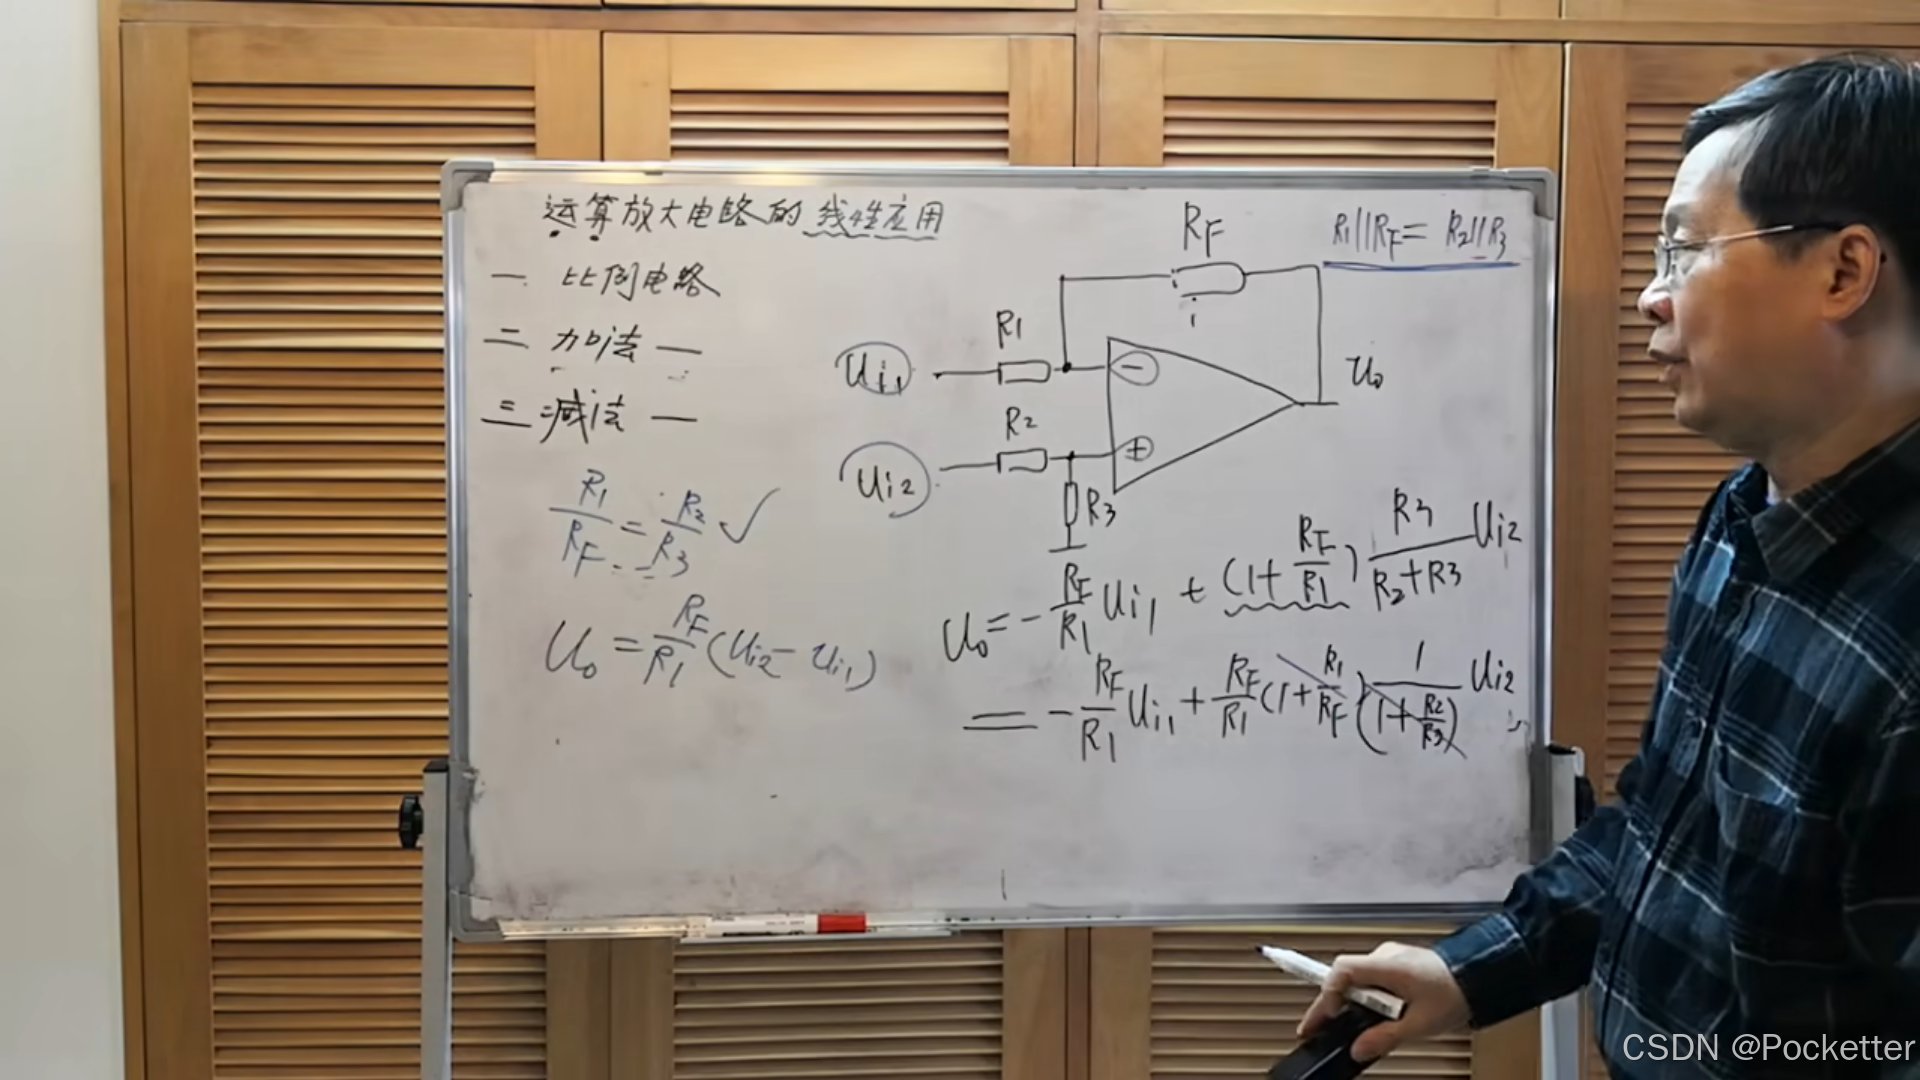 运算放大电路的线性应用
一 比例电路
二 加法 —
三 减法 —
R1/RF = R2/R3 ✓
Uo = RF/R1 (Ui2 - Ui1)
RF
R1||RF = R2||R3
R1
Ui1
−
Uo
R2
Ui2
+
R3
Uo = - RF/R1 Ui1 + (1 + RF/R1) R3/(R2+R3) Ui2
= - RF/R1 Ui1 + RF/R1 (1 + R1/RF) 1/(1 + R2/R3) Ui2
CSDN @Pocketter